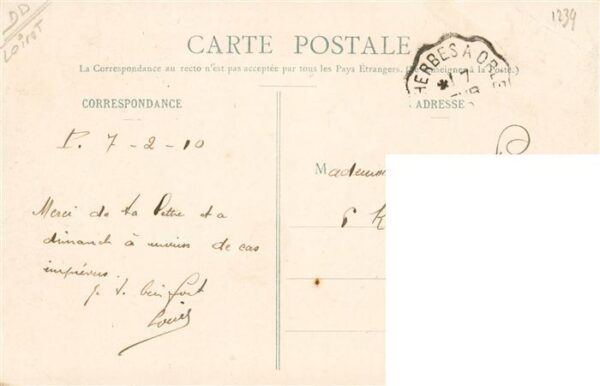 DD
Loiret
1239
CARTE POSTALE
La Correspondance au recto n'est pas acceptée par tous les Pays Étrangers. (Se renseigner à la Poste.)
HERBES A ORLE
17
CORRESPONDANCE
ADRESSE
P. 7-2-10
Merci de ta lettre et a
dimanche à moins de cas
imprévus.
bien fort
Louis
Mademoi